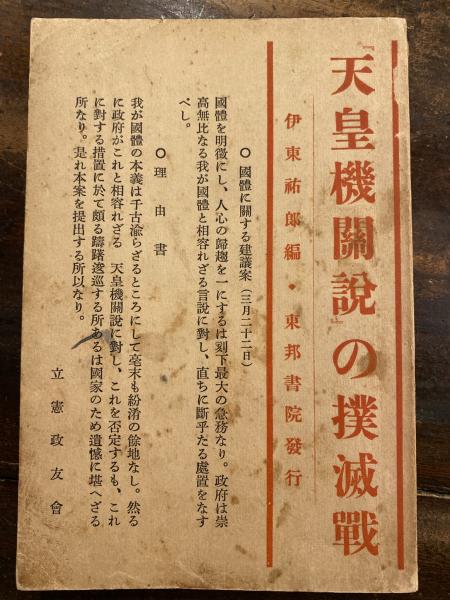 『天皇機關說』の撲滅戰
伊東祐郎編・東邦書院發行
○國體に關する建議案（三月二十二日）
國體を明徵にし、人心の歸趨を一にするは刻下最大の急務なり。政府は崇
高無比なる我が國體と相容れざる言說に對し、直ちに斷乎たる處置をなす
べし。
○理由書
我が國體の本義は千古渝らざるところにして毫末も紛淆の餘地なし。然る
に政府がこれと相容れざる　天皇機關說に對し、これを否定するも、これ
に對する措置に於て頗る躊躇逡巡する所あるは國家のため遺憾に堪へざる
所なり。是れ本案を提出する所以なり。
立憲政友會